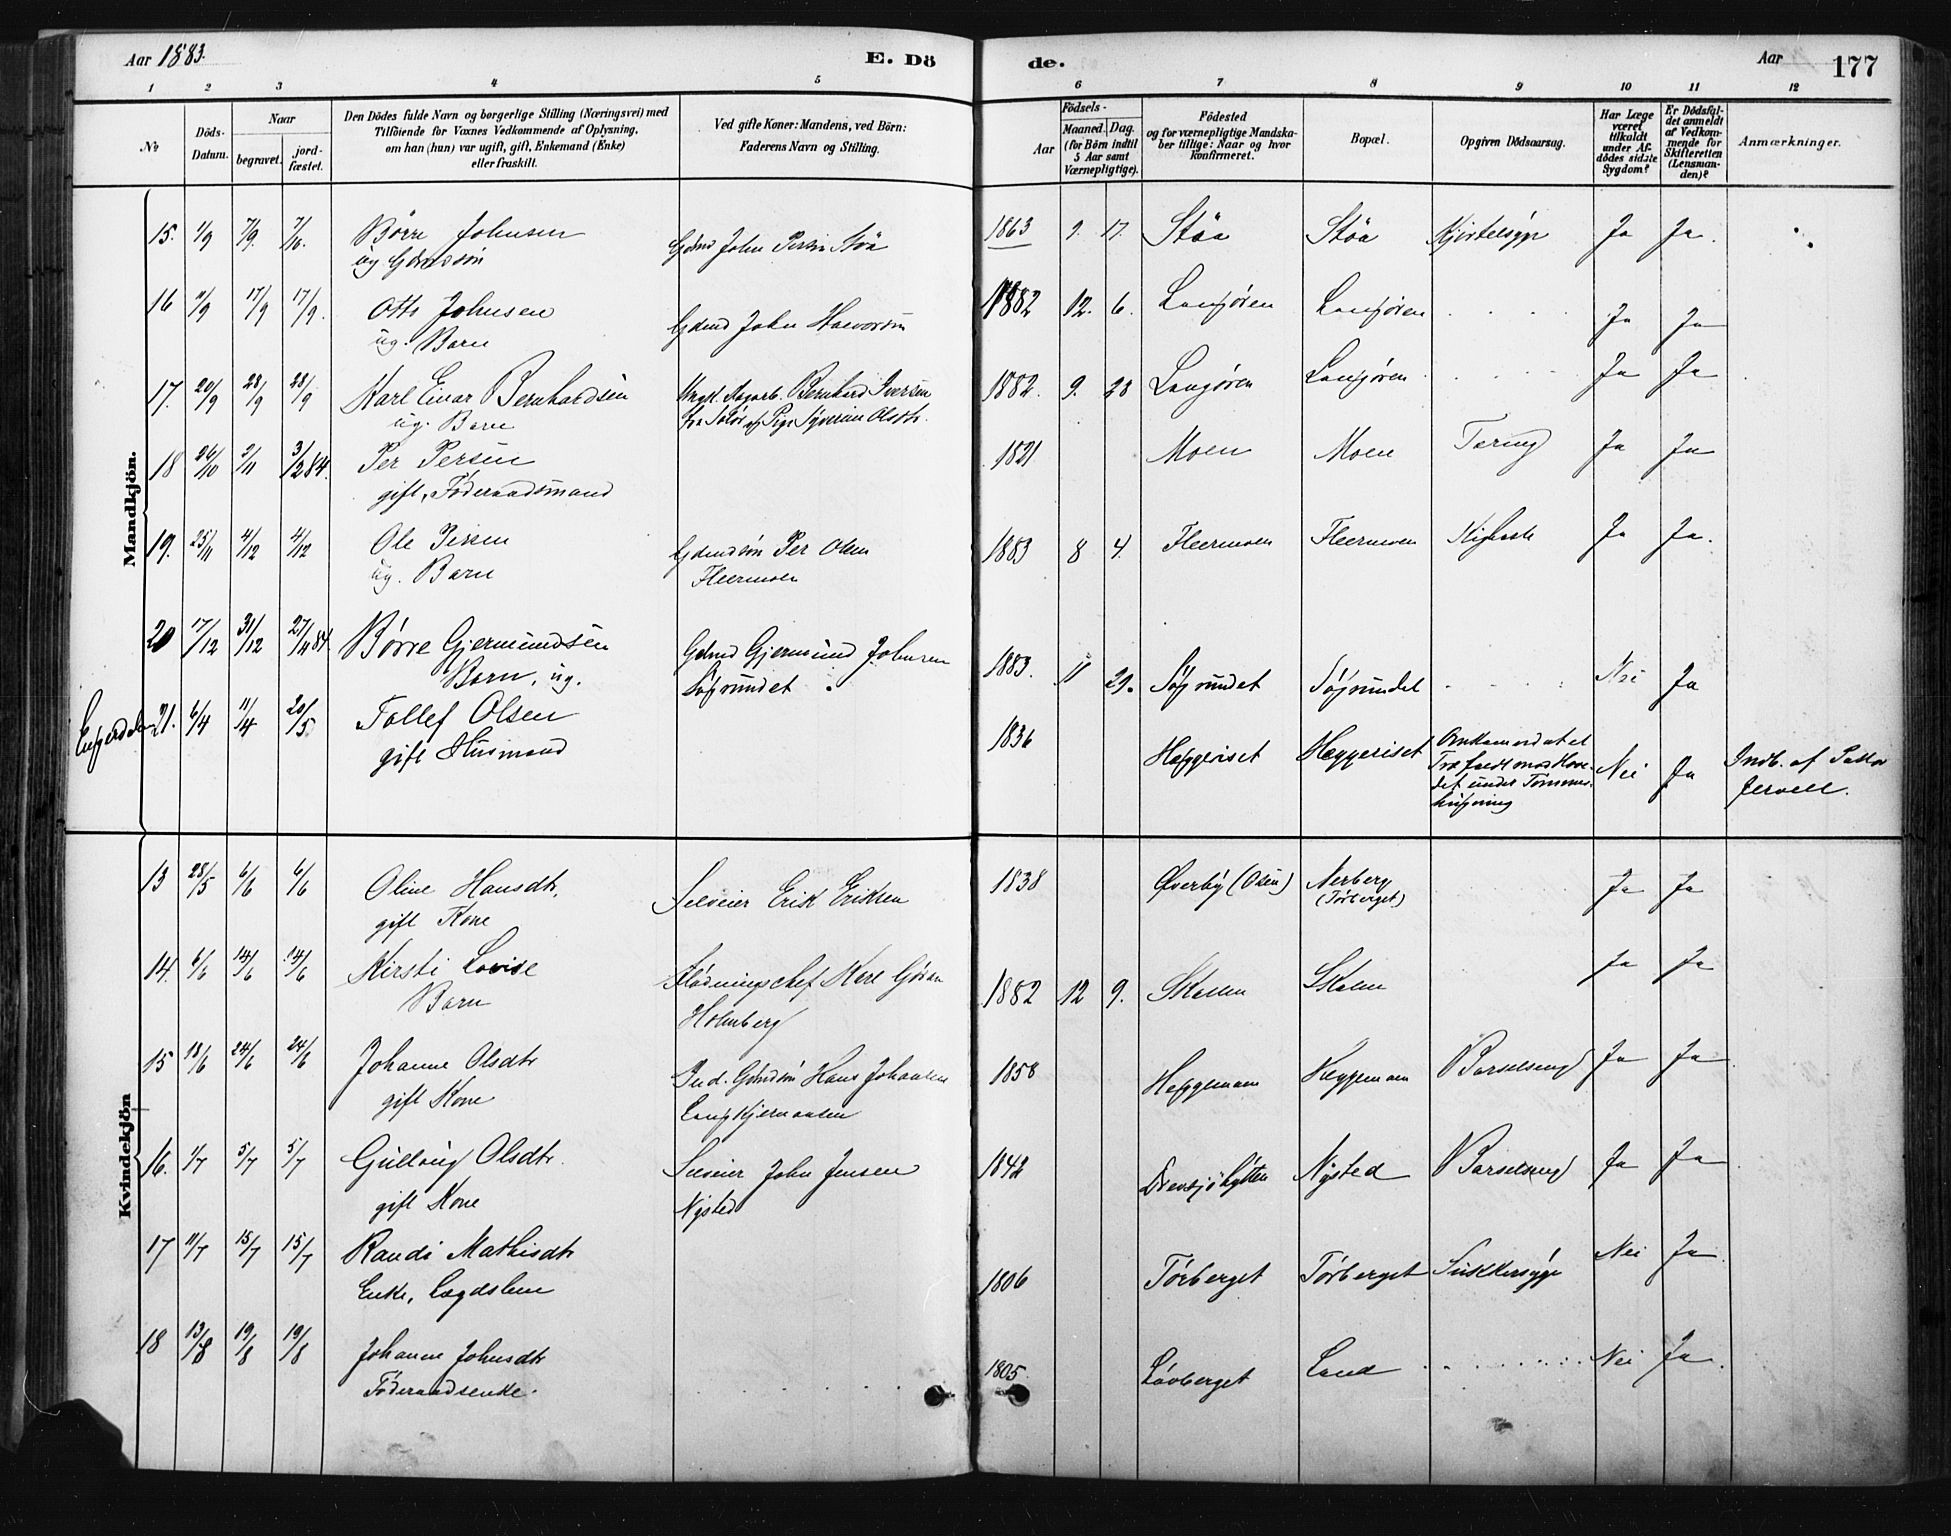 Aar 1883. E. Dö de. Aar 177
1 2 3 4 5 6 7 8 9 10 11 12
No Döds-Datum. Naar begravet. jord-fæstet. Den Dödes fulde Navn og borgerlige Stilling (Næringsvei) med Tilföiende for Voxnes Vedkommende af Oplysning, om han (hun) var ugift, gift, Enkemand (Enke) eller fraskilt. Ved gifte Koner: Mandens, ved Börn: Faderens Navn og Stilling. Födsels- Aar Maaned. Dag. (for Börn indtil 5 Aar samt Værnepligtige). Födested og for værnepligtige Mandskaber tillige: Naar og hvor konfirmeret. Bopæl. Opgiven Dödsaarsag. Har Læge været tilkaldt under Afdödes sidste Sygdom? Er Dödsfaldet anmeldt af Vedkommende for Skifteretten (Lensmanden)? Anmærkninger.
Mandkjön.
15. 1/9 7/9. 7/10. Börre Johnsen Gdmd John Persen Støa 1863 9. 17. Støa Støa Ja Ja.
ug Gdmdssön
16 11/9 17/9 17/9. Otto Johnsen Gdmd John Halvorsen 1882 12. 6. Langøren Langøren Ja Ja
ug. Barn
17. 20/9 28/9 28/9 Karl Einar Bernhardsen Bernhard Iversen 1882. 9. 28 Langøren Langøren Ja Ja
ug. Barn Olsdtr.
18 26/10 2/11 3/2 84. Per Persen 1821 Moen Moen Tæring Ja Ja
gift, Föderaadsmand
19. 25/11 4/12 4/12 Ole Persen Gdmdsön Per Olsen 1883 8 4. Fleermoen Fleermoen Ja Ja.
ug. Barn Fleermoen
20 17/12 31/12 27/4 84. Børre Gjermundsen Gdmd Gjermund Johnsen 1883. 11 29. Søgrundet Søgrundet Nei Ja
Barn, ug. Søgrundet
Engerdalen 21. 6/4 11/4 20/5 Tollef Olsen 1836 Heggeriset Heggeriset Omkom ved at et Nei Ja Indb. af Pastor
gift Husmand Træ faldt mod Hovedet under Tømmerhugning Jervell.
Kvindekjön
13 28/5 6/6 6/6 Oline Hansdtr. Selveier Erik Eriksen 1838 Øverby (Osen) Nerberg (Törberget) Ja Ja
gift Kone
14. 6/6 14/6 14/6 Kirsti Lovise Flødningschef Karl Göran 1882 12 9. Skallen Ja Ja
Barn Holmberg
15 18/6 24/6 24/6 Johanne Olsdtr Gdmdsön Hans Johansen 1858 Heggemoen Heggemoen Barselseng Ja Ja
gift Kone
16. 1/7 5/7 5/7 Gulloug Olsdtr. Selveier John Jensen 1842 Drevsjøhytten Nysted Barselseng Ja Ja
gift Kone Nysted
17 11/7 15/7 15/7 Randi Mathisdtr 1806 Törberget Törberget Sukkersyge Nei Ja
Enke, Lægdslem
18 13/8 19/8 19/8 Johanne Johnsdtr 1805. Lövberget Land Nei Ja.
Föderaadsenke.